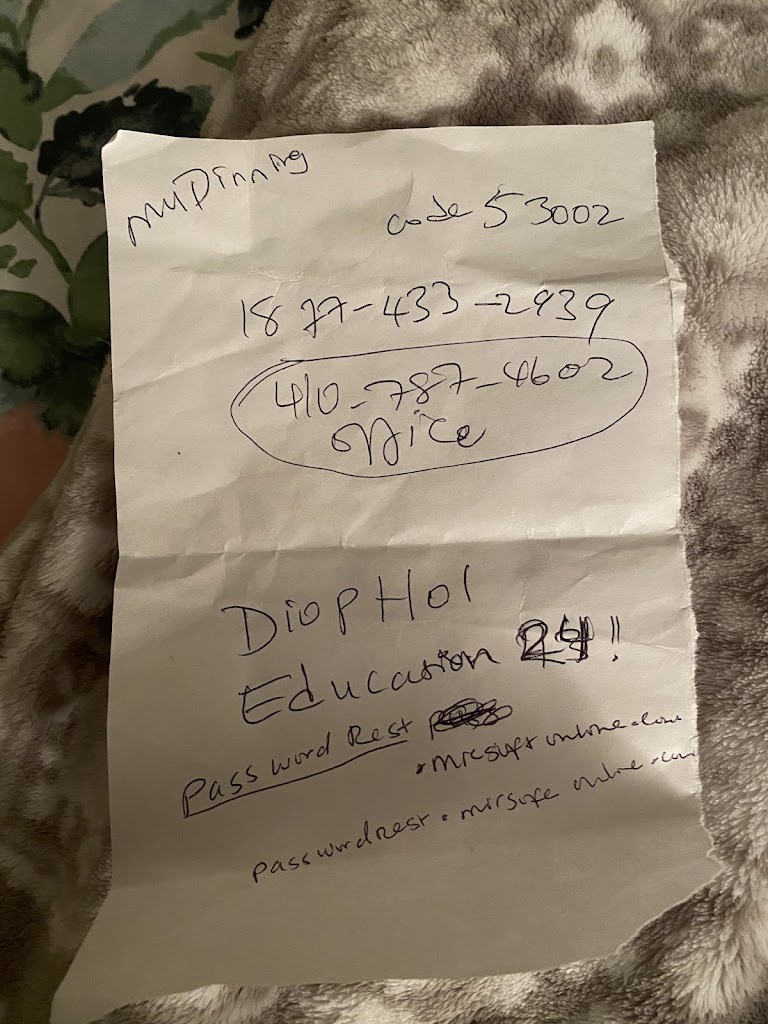 myDinning
code 53002
1877-433-2939
410-787-4602
office
DiopHol
Education 24!
Password Rest
. micsoft online.com
passwordrest. mirsofe online.com